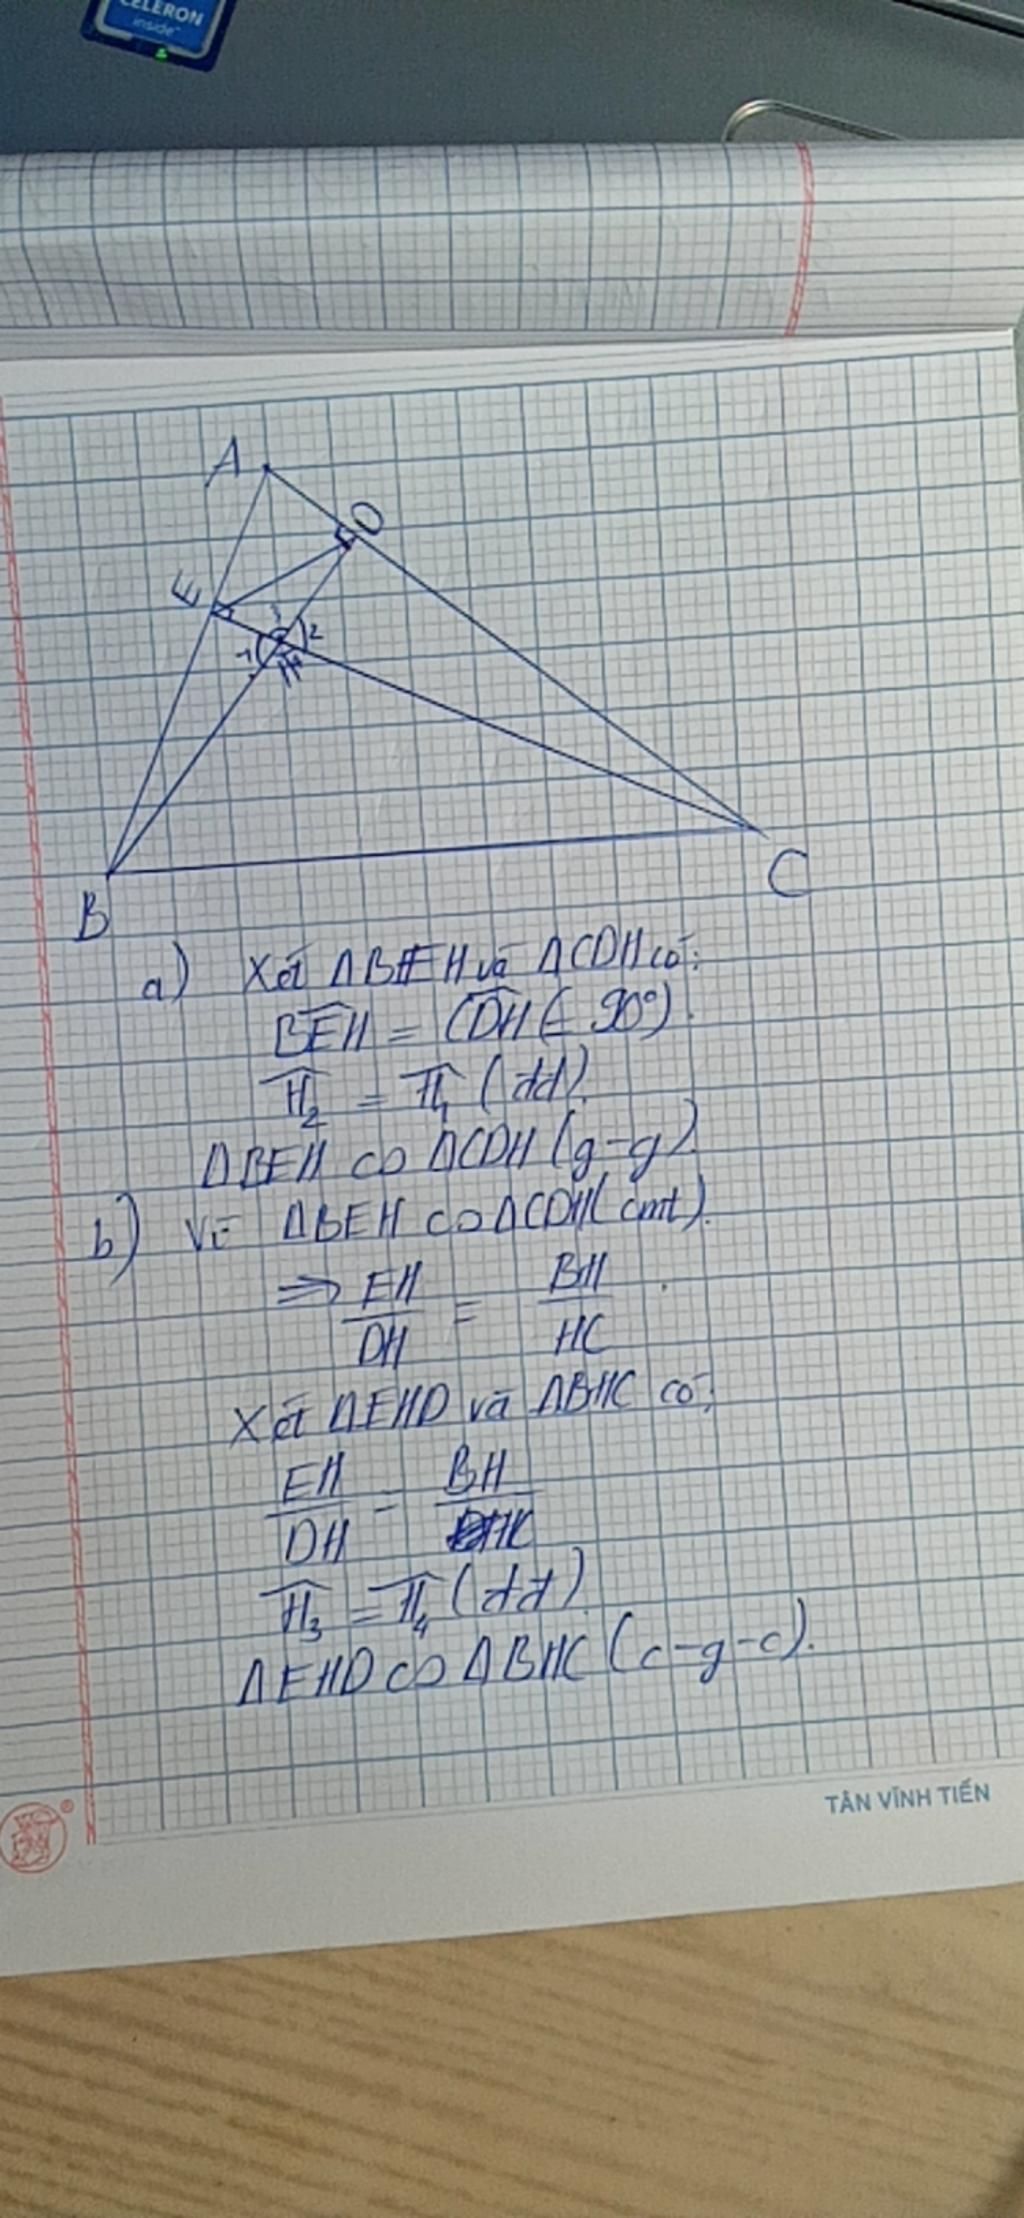 CELERON
inside™
A
D
E
3
1
2
H
4
B
C
a) Xét ΔBEH và ΔCDH có:
$\widehat{BEH}$ = $\widehat{CDH}$ (= 90°).
$\widehat{H_2}$ = $\widehat{H_1}$ (dd).
ΔBEH ∽ ΔCDH (g-g).
b) Vì ΔBEH ∽ ΔCDH (cmt).
⇒ $\frac{EH}{DH}$ = $\frac{BH}{HC}$.
Xét ΔEHD và ΔBHC có:
$\frac{EH}{DH}$ = $\frac{BH}{HC}$
$\widehat{H_3}$ = $\widehat{H_4}$ (dd).
ΔEHD ∽ ΔBHC (c-g-c).
TÂN VĨNH TIẾN